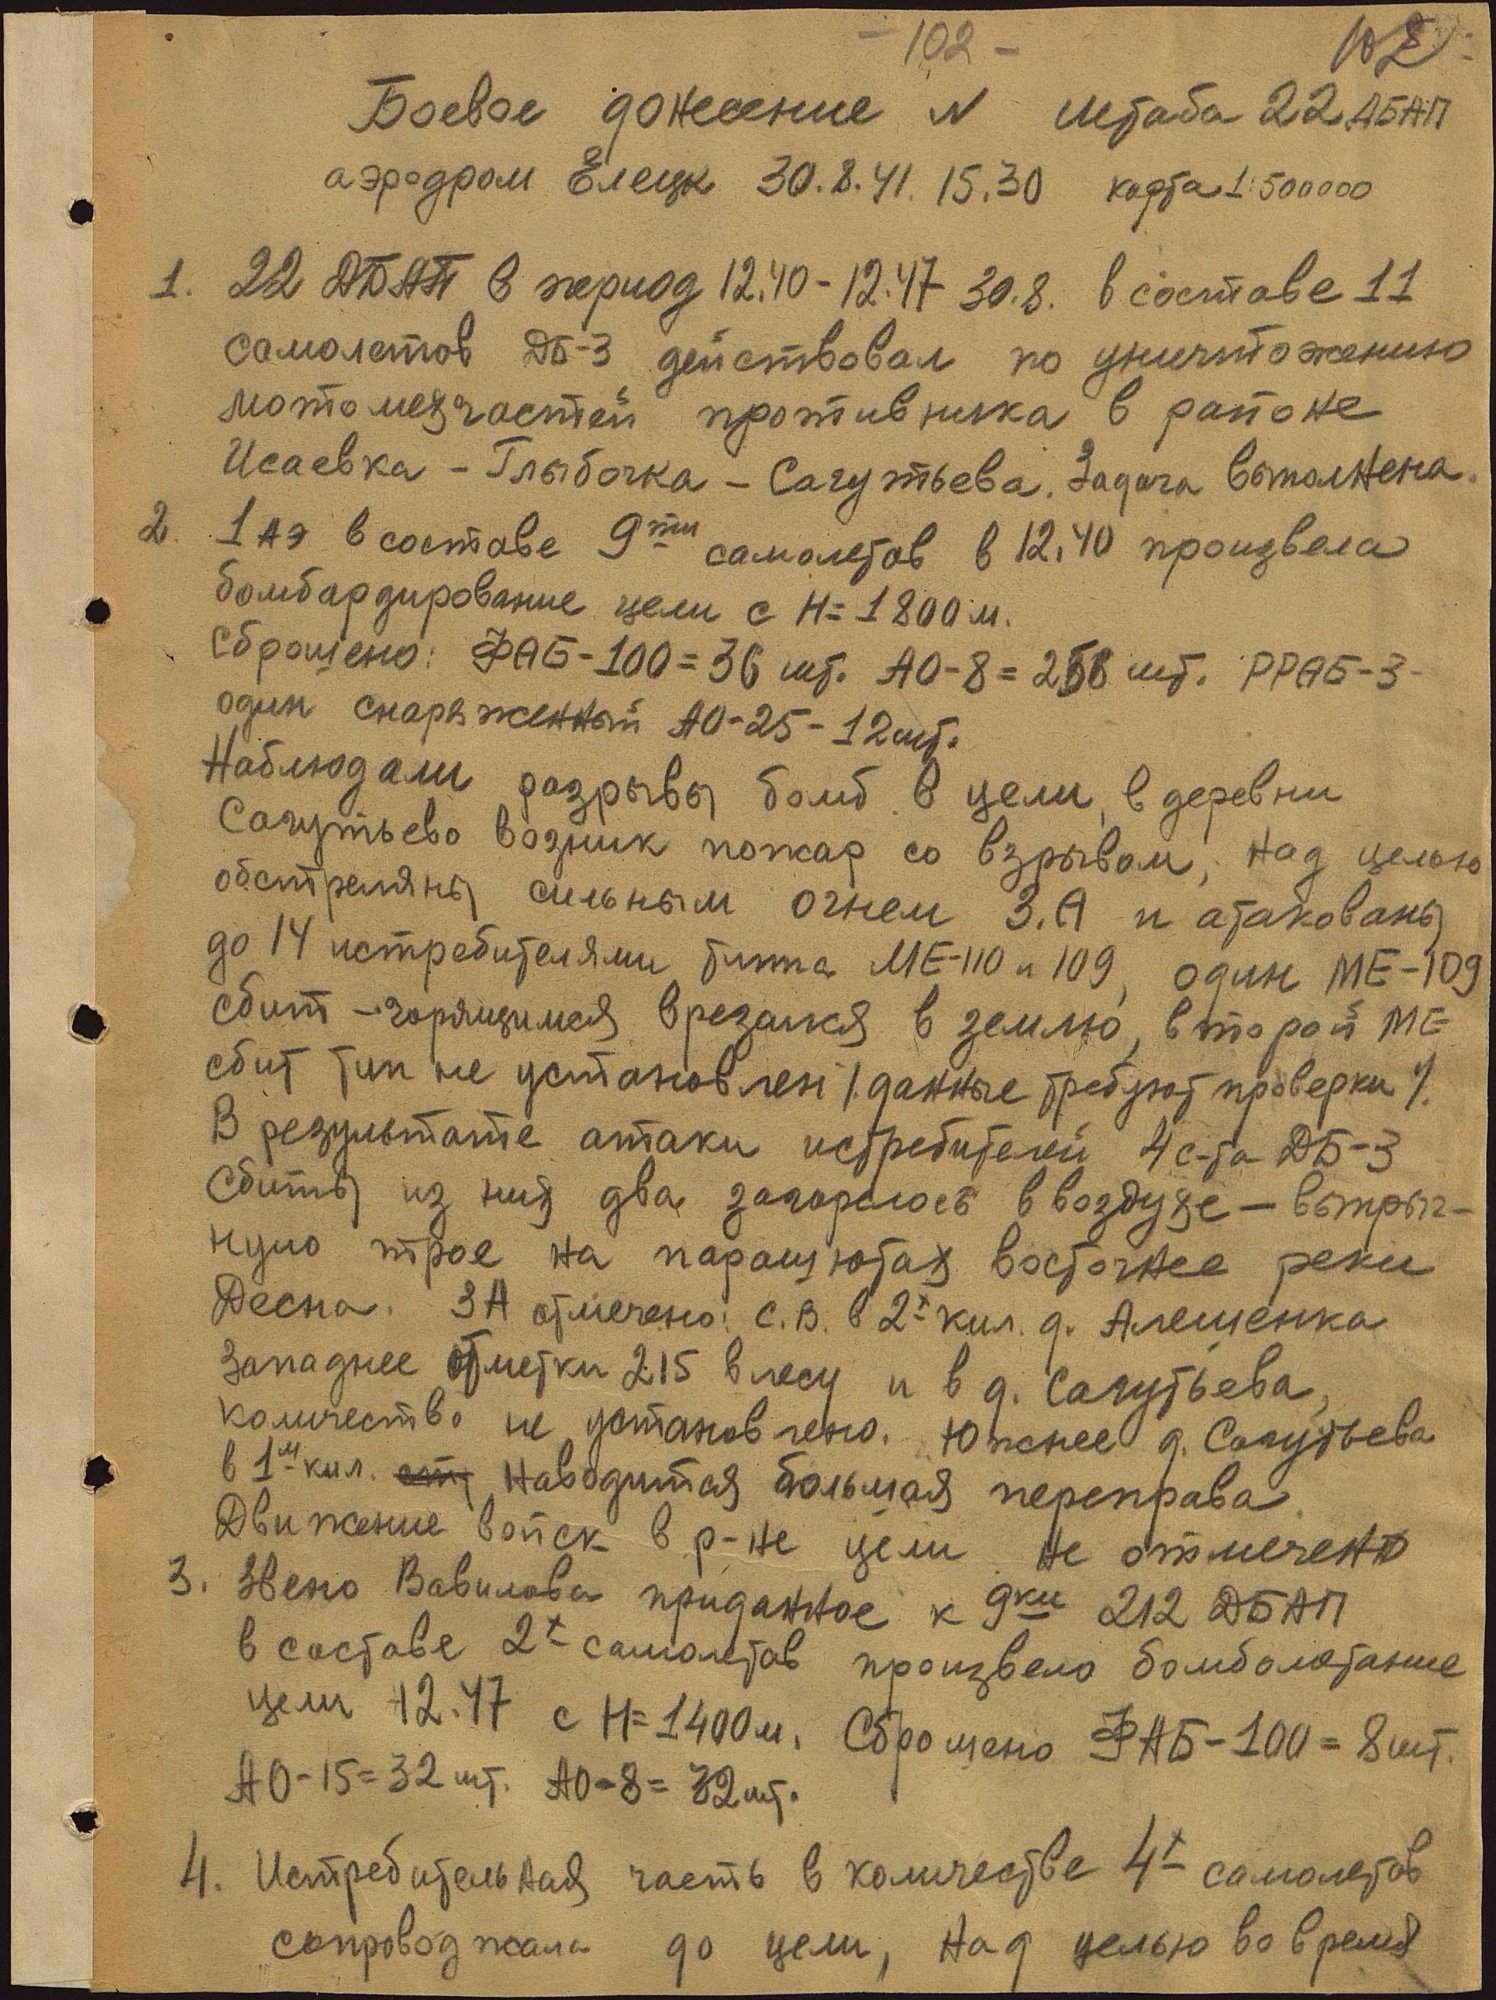 - 102 -
102
Боевое донесение N штаба 22 ДБАП
аэродром Елецк 30.8.41. 15.30 карта 1:500000
1. 22 ДБАП в период 12.40 - 12.47 30.8. в составе 11
самолетов ДБ-3 действовал по уничтожению
мотомехчастей противника в районе
Исаевка - Глыбочка - Сагутьева. Задача выполнена.
2. 1 АЭ в составе 9ти самолетов в 12.40 произвела
бомбардирование цели с Н= 1800 м.
Сброшено: ФАБ-100 = 36 шт. АО-8 = шт. РРАБ-3 -
один снаряженный АО-25 - 12 шт.
Наблюдали разрывы бомб в цели, в деревни
Сагутьево возник пожар со взрывом, над целью
обстреляны сильным огнем З.А и атакованы
до 14 истребителями типа МЕ-110 и 109, один МЕ-109
сбит - горящимся врезался в землю, второй МЕ
сбит тип не установлен /.данные требуют проверки/.
В результате атаки истребителей 4 с-та ДБ-3
сбиты из них два загорелось в воздухе - выпрыг-
нуло трое на парашютах восточнее реки
Десна. ЗА отмечено: С.В. в 2х кил. д. Алешенка
западнее отметки 215 в лесу и в д. Сагутьева,
количество не установлено. Южнее д. Сагутьева
в 1м кил. наводится большая переправа.
Движение войск в р-не цели не отмечено
3. Звено Вавилова приданное к 9ки 212 ДБАП
в составе 2х самолетов произвело бомбометание
цели 12.47 с Н= 1400 м. Сброшено ФАБ-100 = 8 шт.
АО-15 = 32 шт. АО-8 = 32 шт.
4. Истребительная часть в количестве 4х самолетов
сопровождала до цели, над целью во время